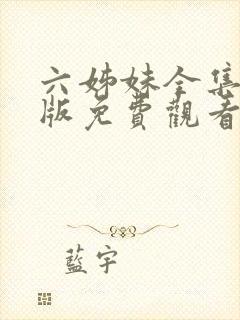 六姊妹全集
版免費觀看
藍宇